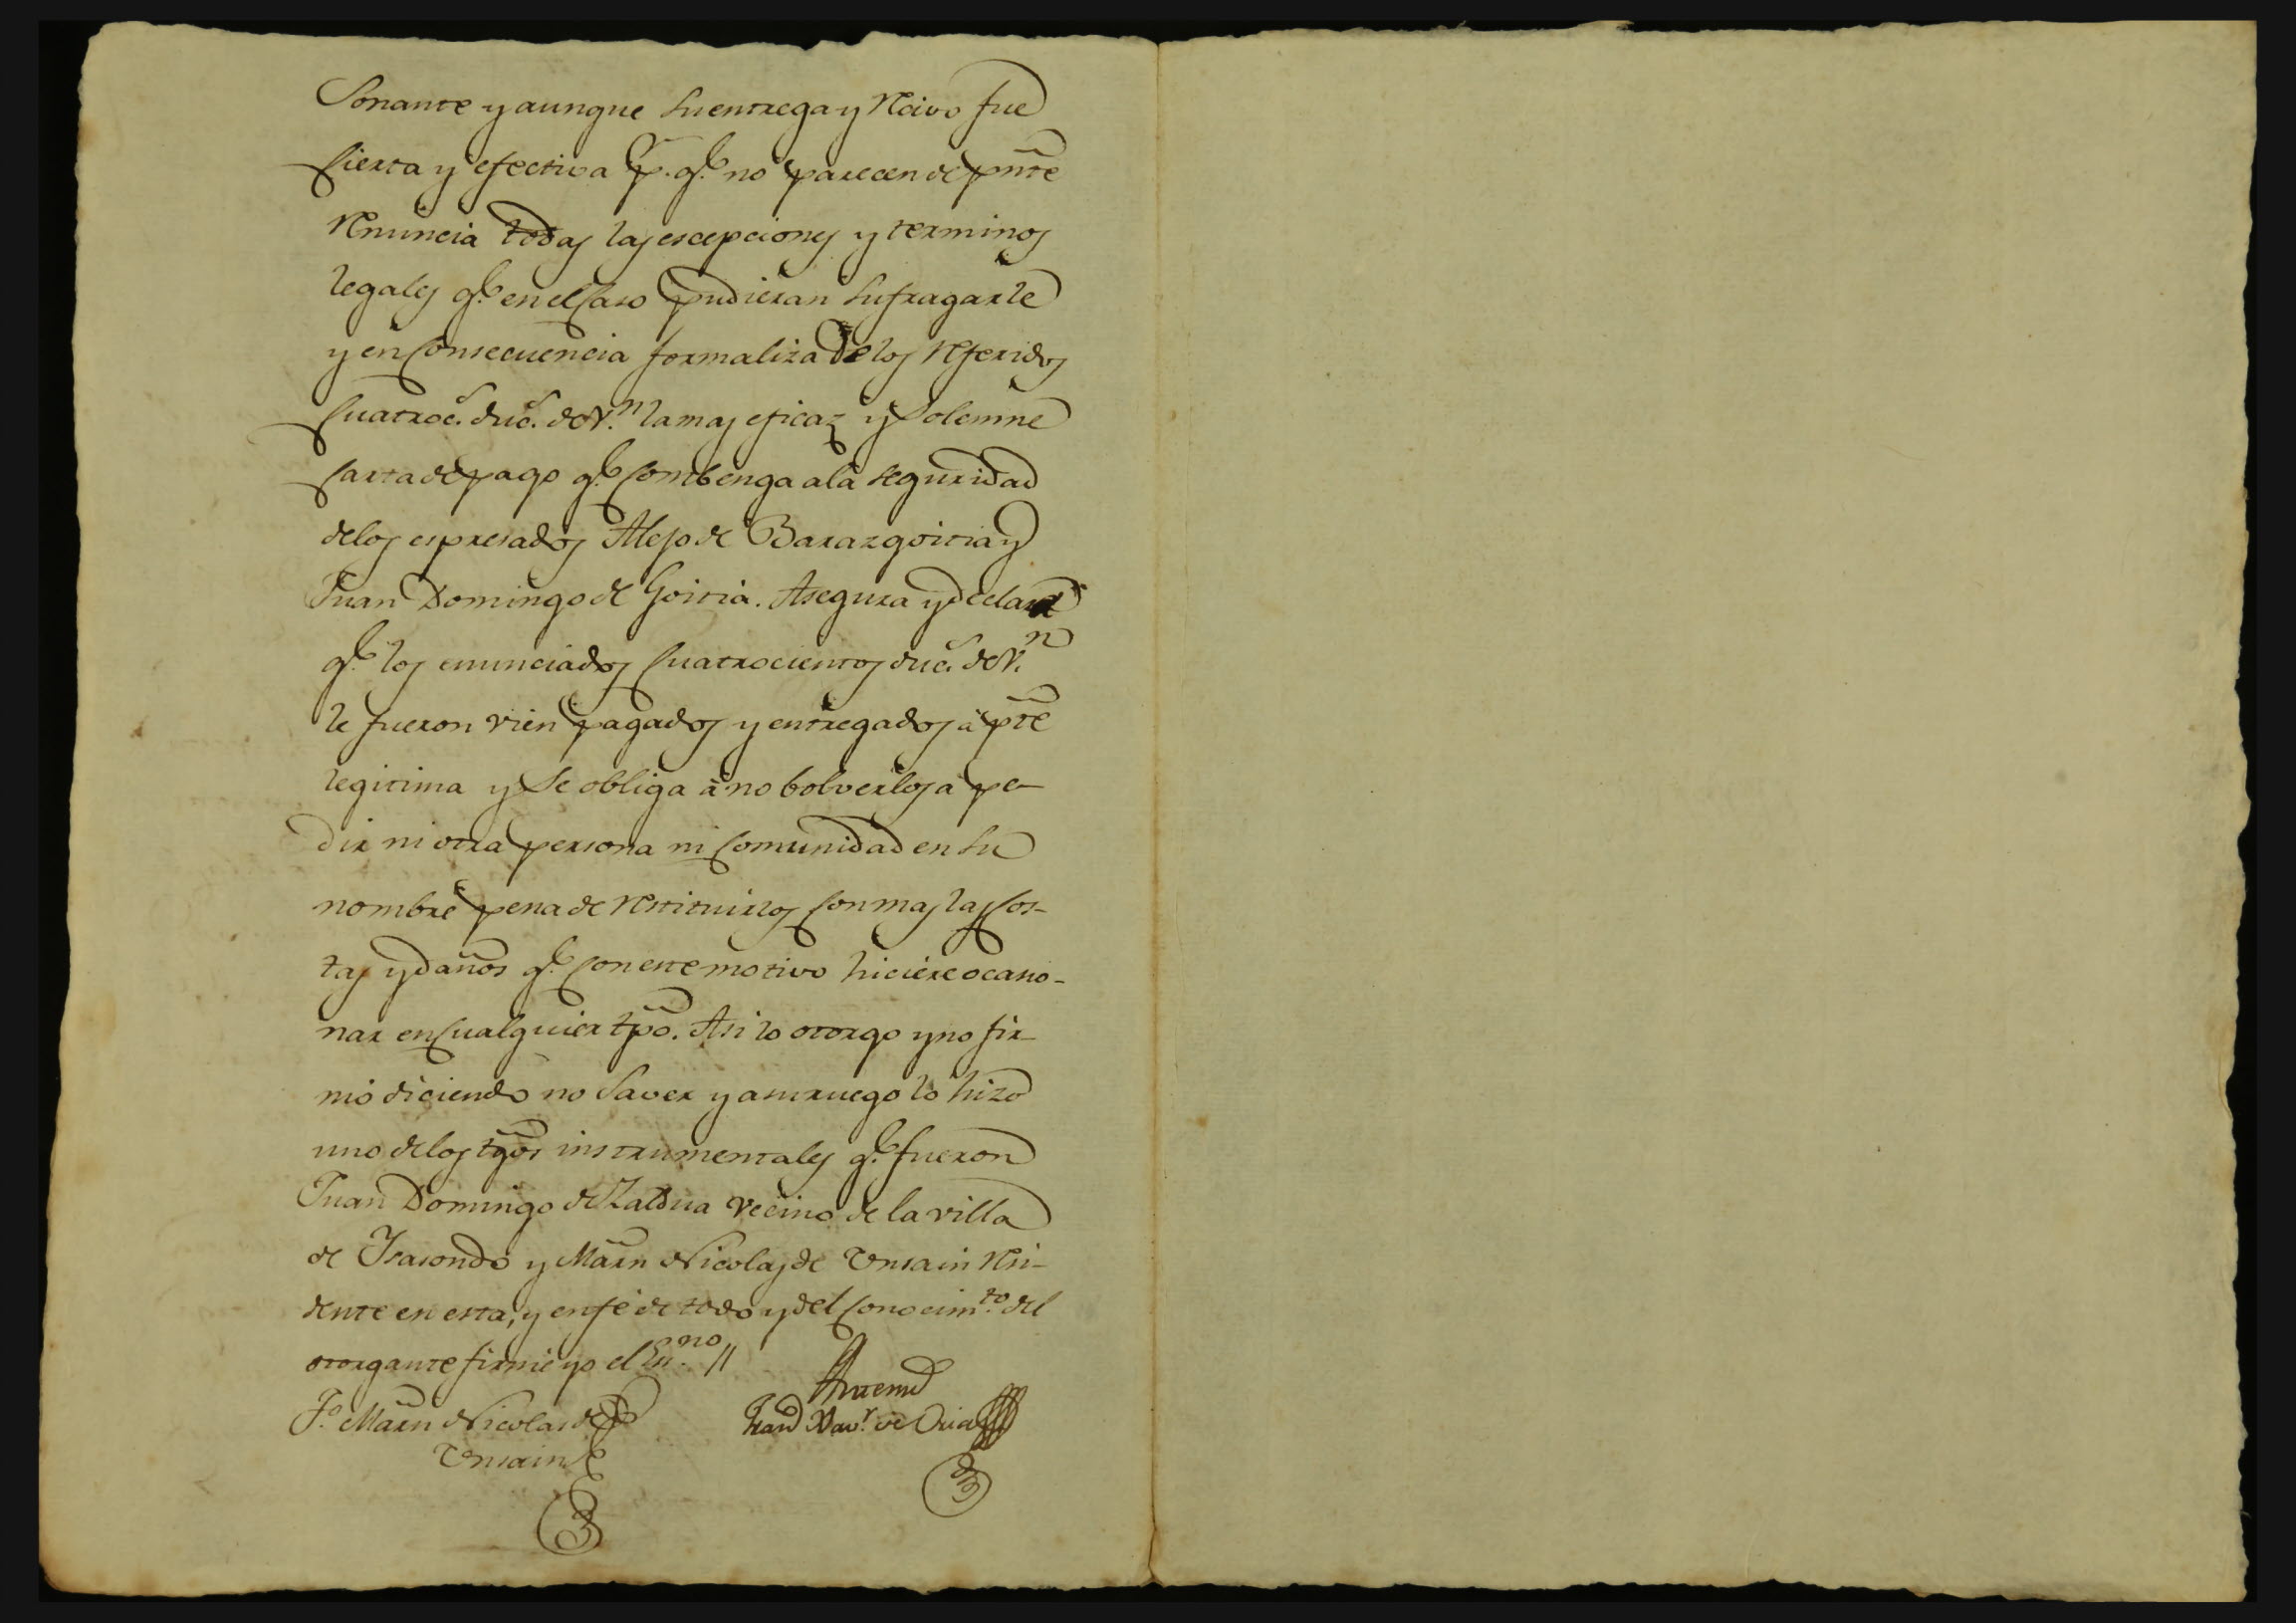 Sonante y aunque su entrega y recivo fue
cierta y efectiva p.r q.e no parecen de pnte
renuncia todas las escepciones y terminos
legales q.e en el caso pudieran sufragarle
y en consecuencia formaliza de los referidos
cuatroc.s duc.s de v.n la mas eficaz y solemne
carta de pago q.e combenga a la seguridad
de los espresados Alejo de Barazgoitia y
Juan Domingo de Goitia. Asegura y declara
q.e los enunciados cuatrocientos duc.s de v.n
le fueron vien pagados y entregados à pte
legitima y se obliga à no bolverlos à pe-
dir ni otra persona ni comunidad en su
nombre pena de restituirlos con mas las cos-
tas y daños q.e con este motivo hiciere ocasio-
nar en cualquier tpo. Asi lo otorgo y no fir-
mó diciendo no saver y a su ruego lo hizo
uno de los tgos instrumentales q.e fueron
Juan Domingo de Zaldua vecino de la villa
de Isasondo y Marn Nicolas de Unsain resi-
dente en esta, y en fé de todo y del conocim.to del
otorgante firmé yo el Es.no //
T.o Marn Nicolas de
Unsain
Antemi
Xav.r de Oria